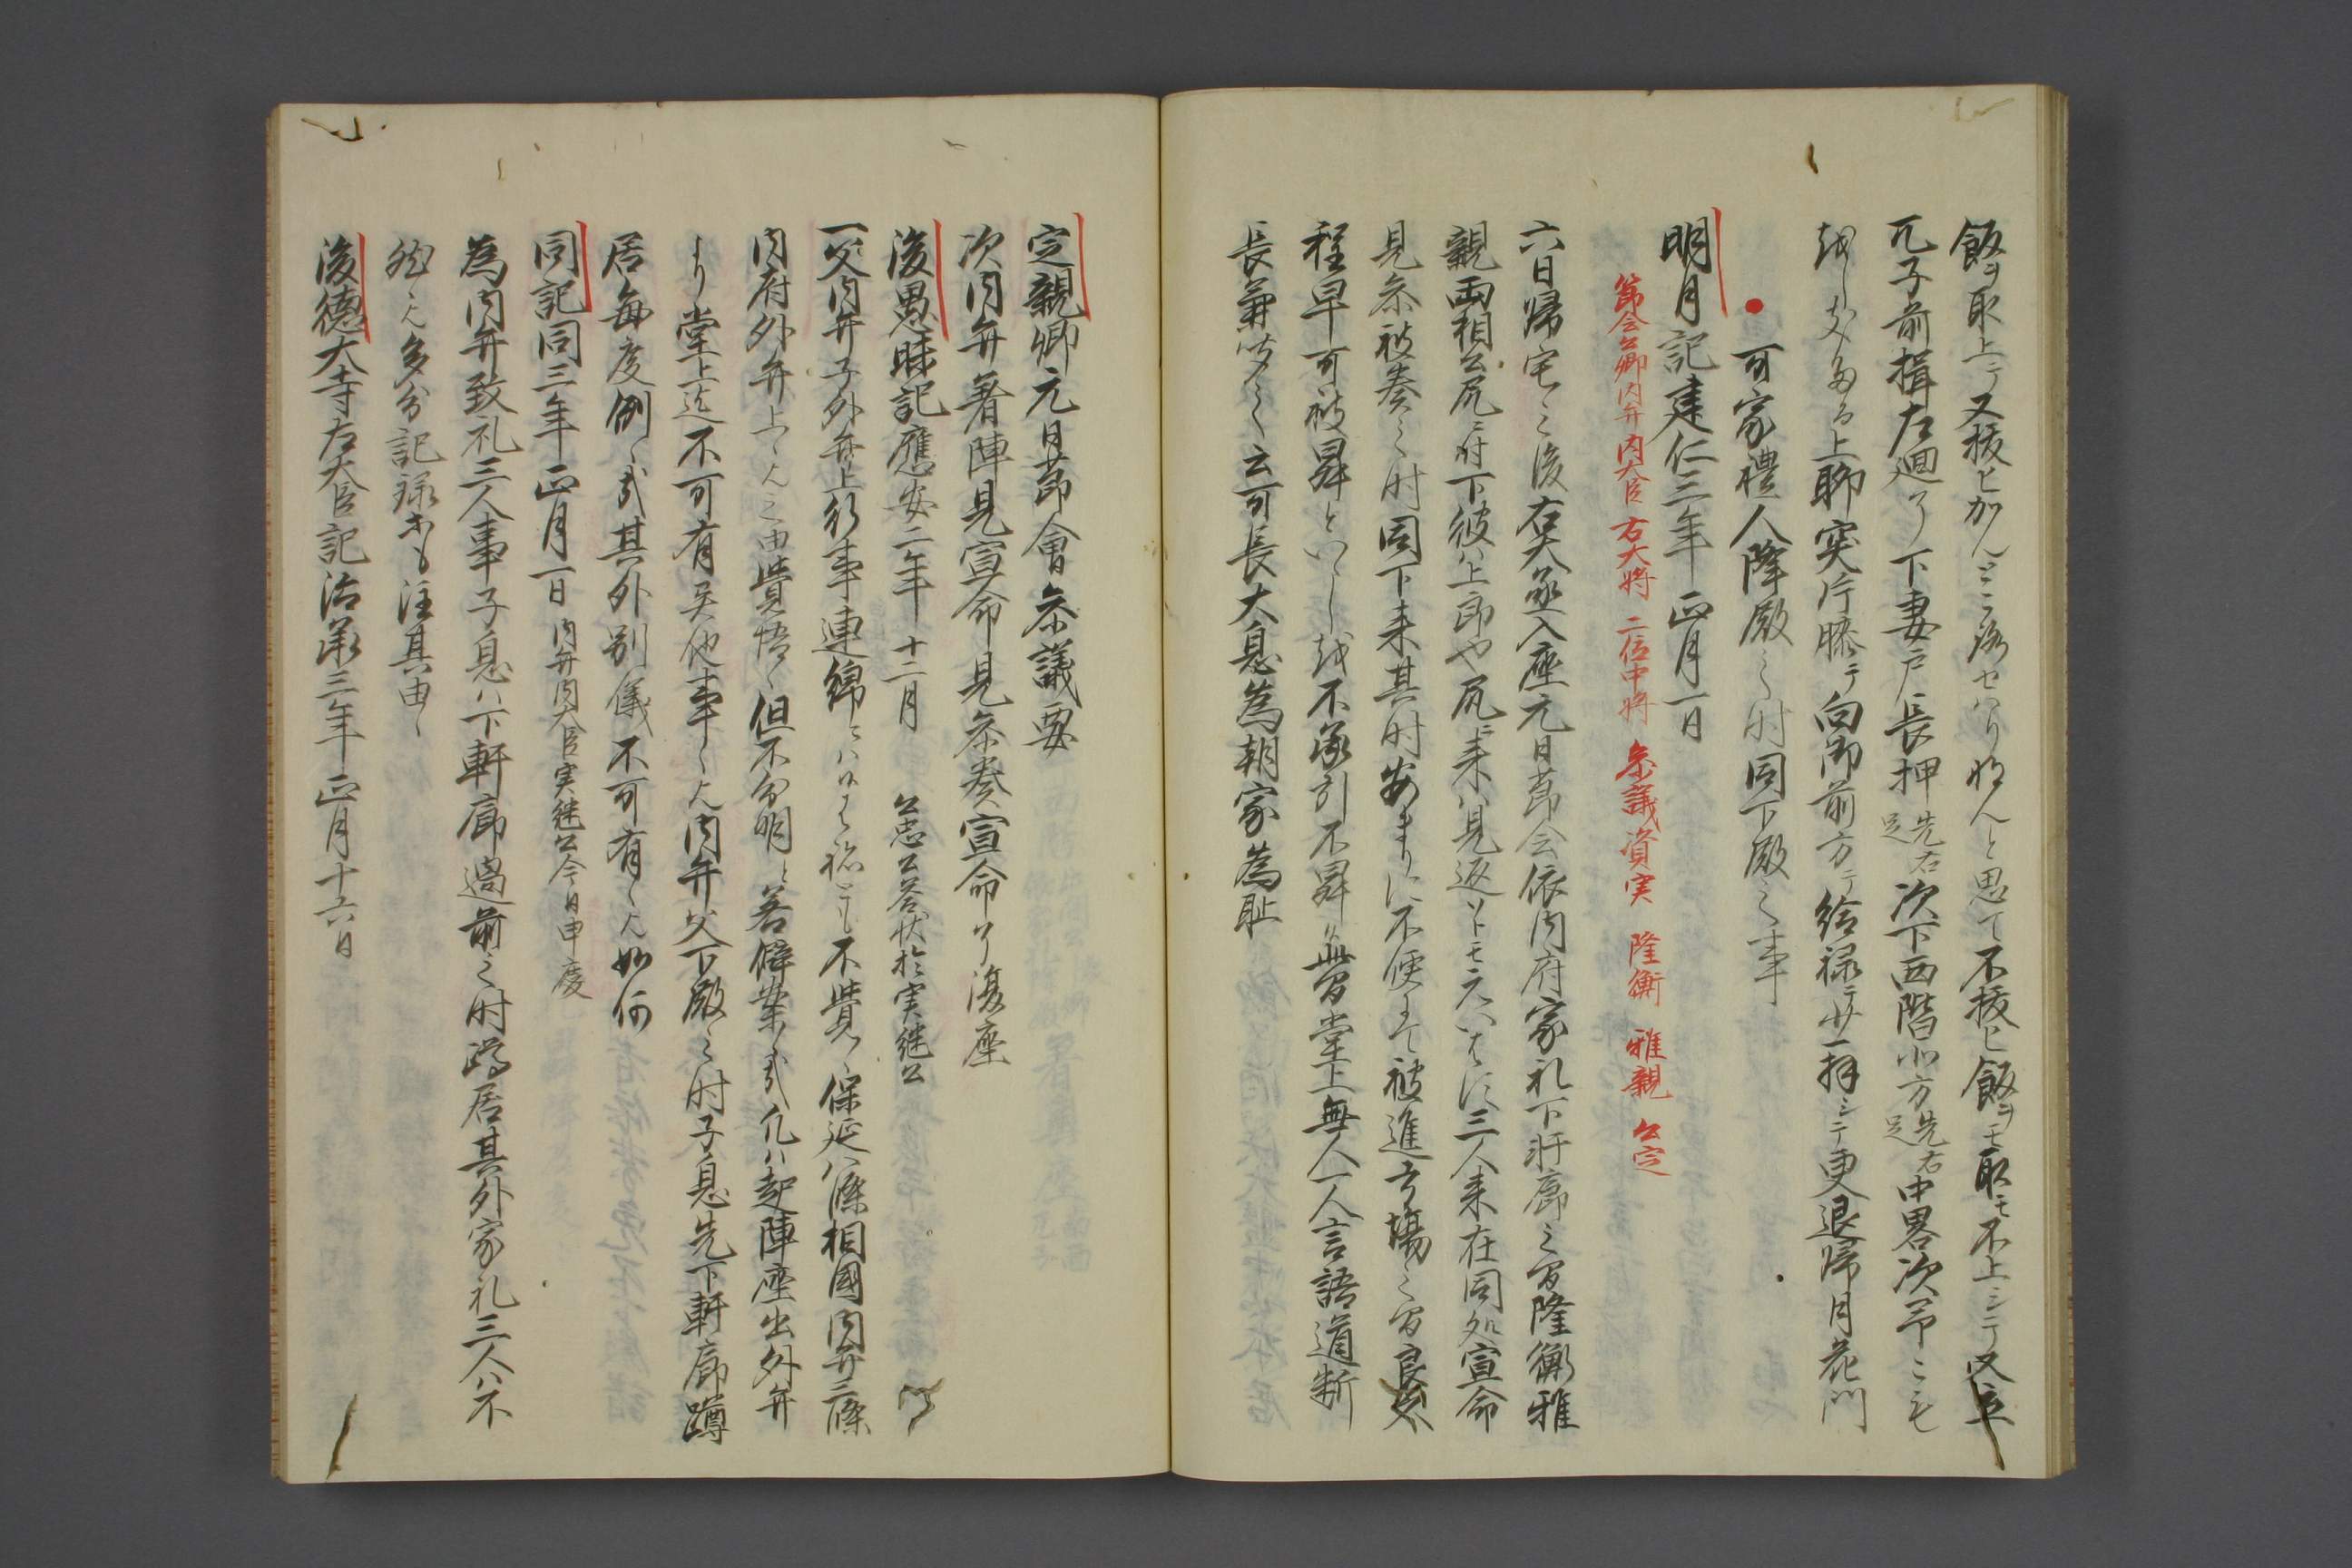 飯ヲ取上テ又抜ヒ加んところせハり ねんと思て不抜ヒ飯ヲモ取モ不上シテ又立
兀子前揖左廻了下妻戸長押先右足次下西階北方先右足中畧次第こも
上聊突片膝テ向御前方テ給禄テ一拜シテ更退帰月花門
可家禮人降殿之時同下殿之事
明月記建仁三年正月一日
節会公卿内弁内大臣 右大将 二位中将 参議資実 隆衡 雅親 公定
六日帰宅之後右大丞入座元日節会依内府家礼下軒廊之間隆衡雅
親両相公尻ニ付下彼ハ上郎や尻ニ来ハ見返ソトモ三人来在同処宣命
見参被奏之時同下来其時あまりに不便まて被進立場之間良久
程早可被昇といへ不承引不昇無堂上無人一人言語道断
長兼云可長大息為朝家為恥
定親卿元日節會参議要
次内弁著陣見宣命見参奏宣命了復座
後愚昧記應安二年十二月 公忠公答状於実継公
一父内弁子外弁上行事連綿不覚保延八條相國内弁三條
内府外弁上之由覚悟但不分明若僻案凡ハ起陣座出外弁
より堂上迄不可有異他事内弁父下殿之時子息先下軒廊蹲
居毎度例其外別儀不可有如何
同記同三年正月一日 内弁内大臣実継公今日申慶
為内弁致礼三人事子息ハ下軒廊過前之時蹲居其外家礼三人ハ不
然多分記録ホも注其由
後徳大寺左大臣記治承三年正月十六日